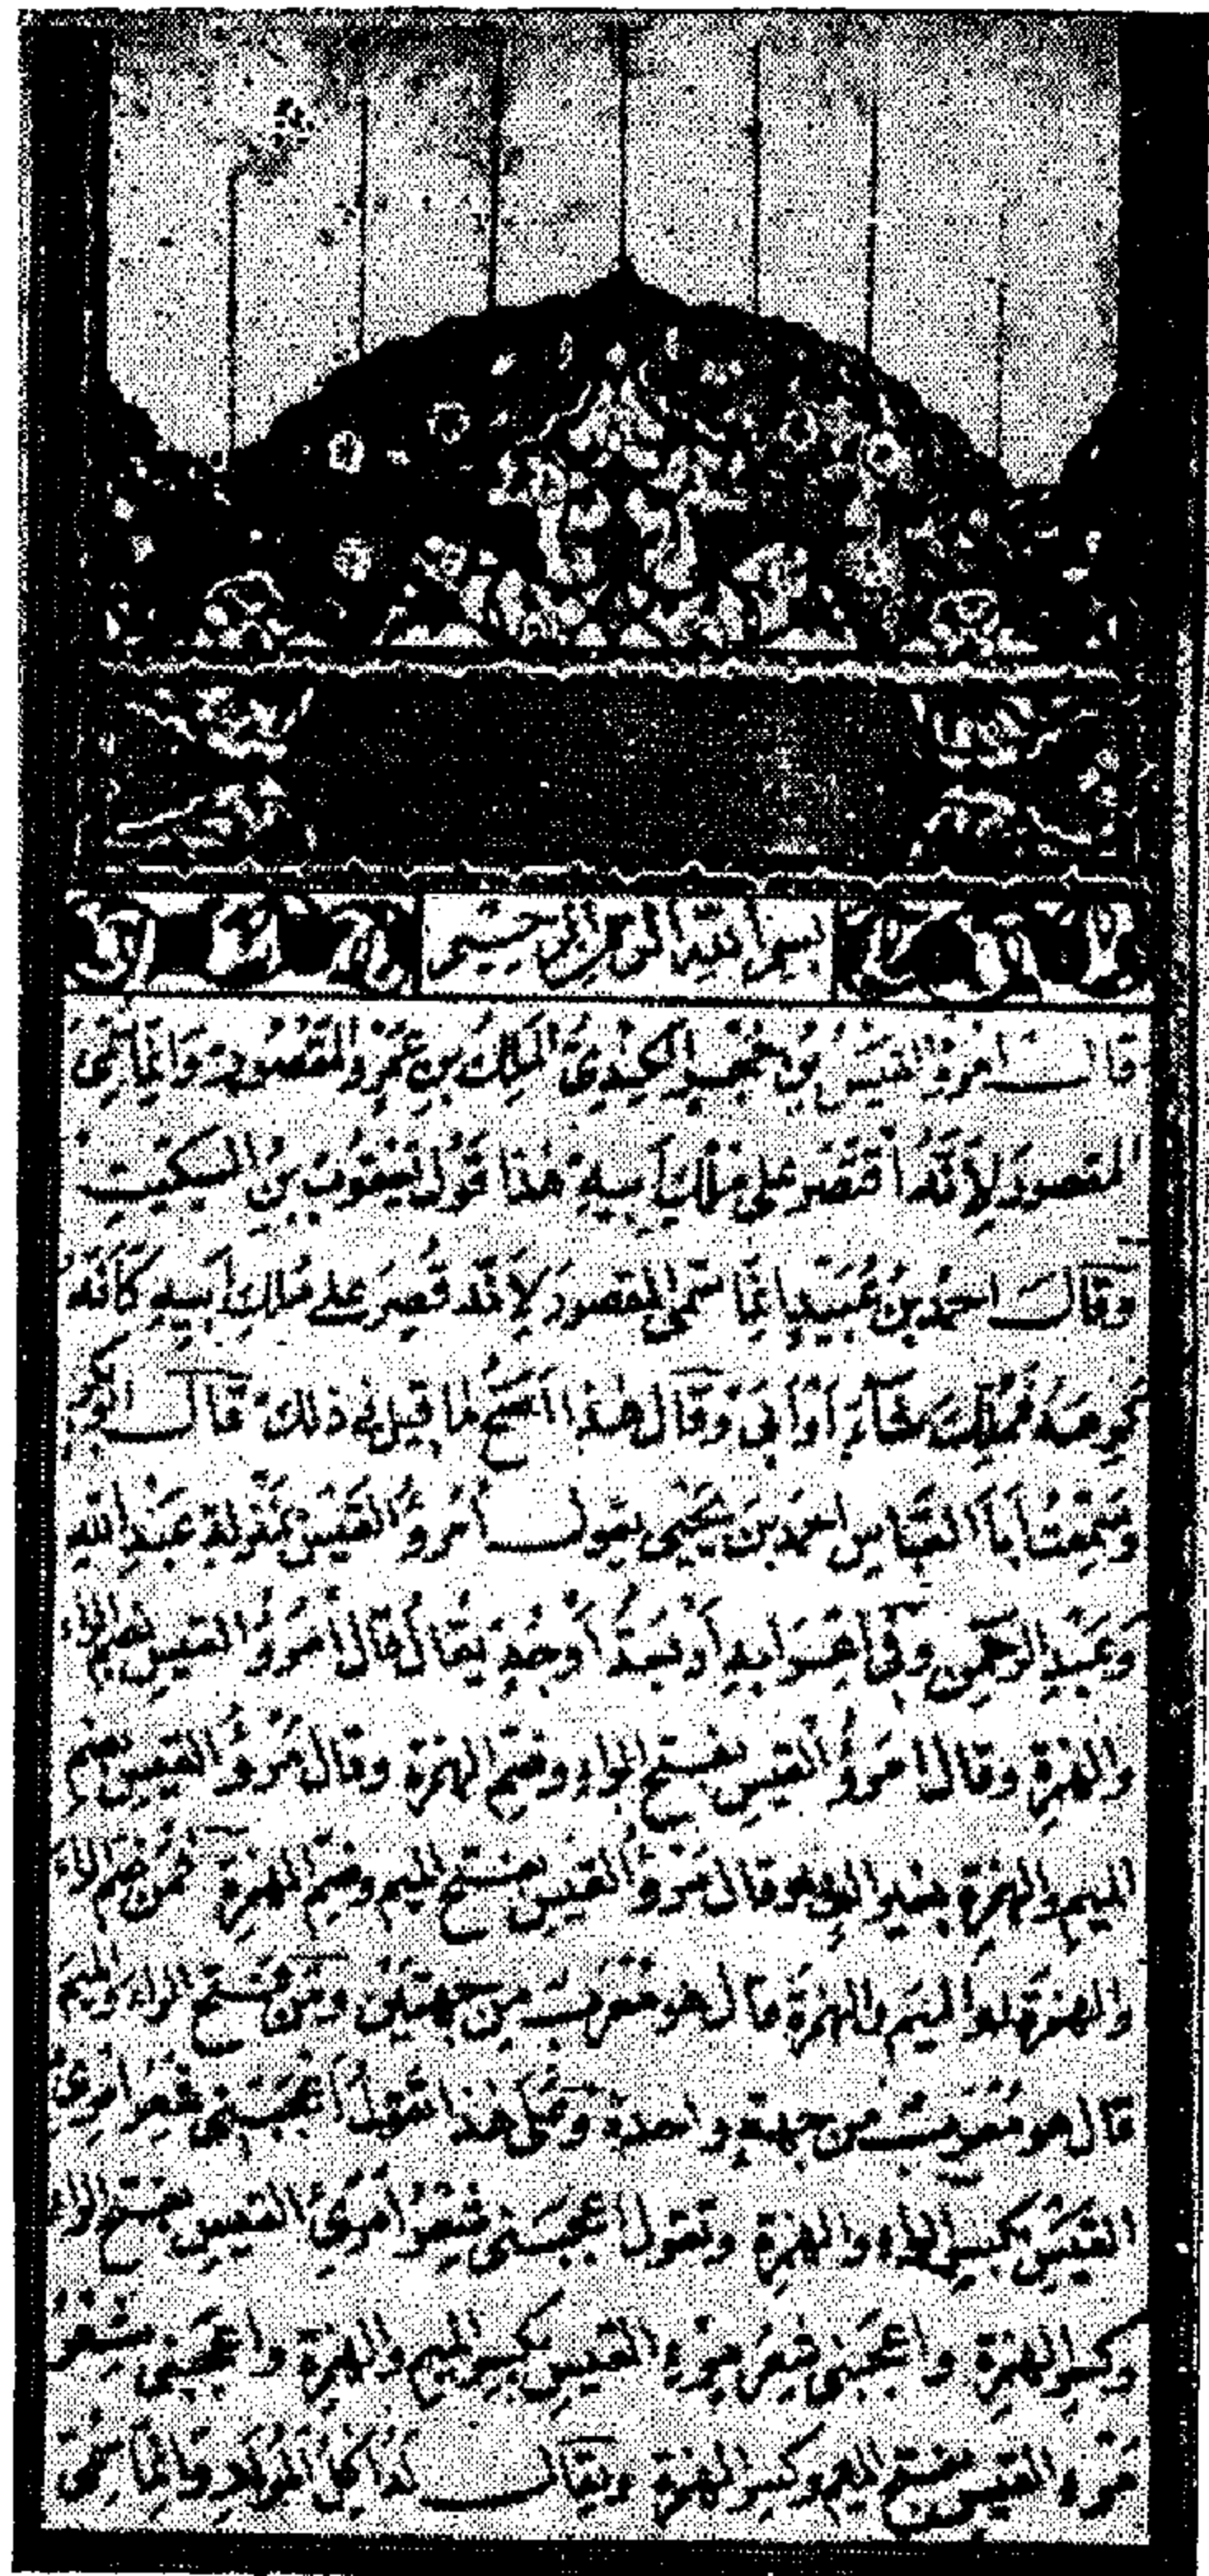 بسم الله الرحمن الرحيم
قال امرؤ القيس بن حجر الكندي الملك بن عمرو المقصور وانما سمي
المقصور لانه اقتصر على ملك ابيه هذا قول يعقوب بن السكيت
وقال احمد بن عبيد انما سمي المقصور لانه قصر على ملك ابيه كانه
كره فملك او ابى وقال هذا اصح ما قيل في ذلك قال ابو بكر
وسمعت ابا العباس احمد بن يحيى يقول امرؤ القيس بمنزلة عبد الله
وعبد الرحمن وفي اعرابه اربعة اوجه يقال قال امرؤ القيس بضم الراء
والهمزة وقال امرؤ القيس بفتح الراء وضم الهمزة وقال مرؤ القيس بضم
الميم والهمزة بغير الف وقال مرؤ القيس بفتح الميم وضم الهمزة فمن ضم الراء
والهمزة والميم والهمزة قال هو معرب من جهتين ومن فتح الراء والميم
قال هو معرب من جهة واحدة وعلى هذا تقول اعجبني شعر امرئ
القيس بكسر الراء والهمزة وتقول اعجبني شعر امرئ القيس بفتح الراء
وكسر الهمزة واعجبني شعر مرء القيس بكسر الميم والهمزة واعجبني شعر
مرء القيس بفتح الميم وكسر الهمزة ويقال وانما سمي